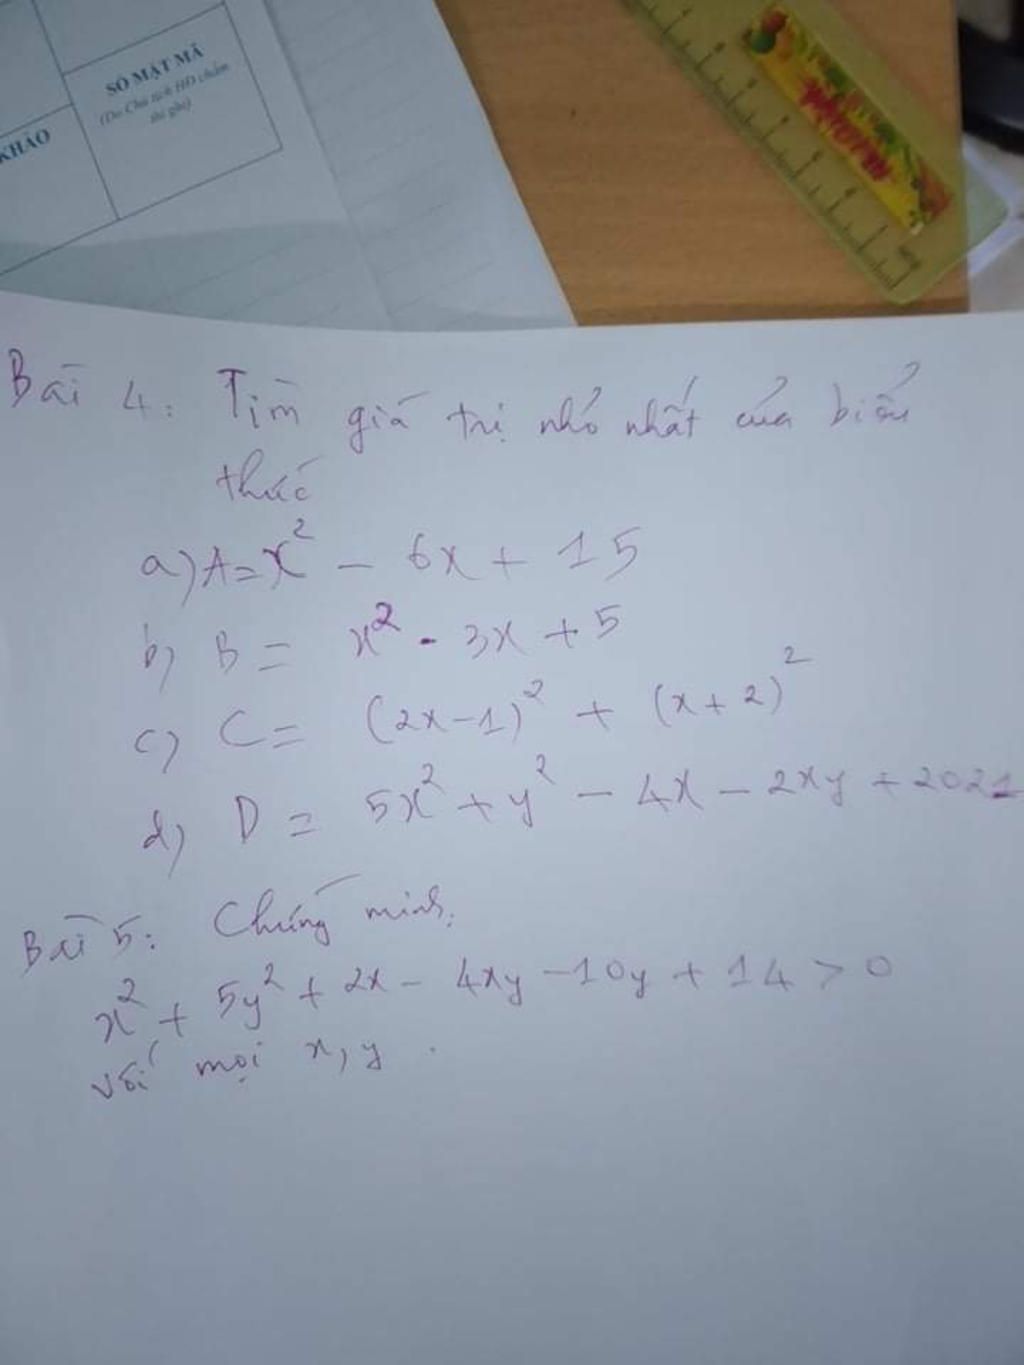 SỐ MẬT MÃ
(Do Chủ tịch HĐ chấm
thi ghi)
KHẢO
Bài 4: Tìm giá trị nhỏ nhất của biểu
thức
a) A = x² - 6x + 15
b) B = x² - 3x + 5
c) C = (2x-1)² + (x+2)²
d) D = 5x² + y² - 4x - 2xy + 2021
Bài 5: Chứng minh.
x² + 5y² + 2x - 4xy - 10y + 14 > 0
với mọi x, y .